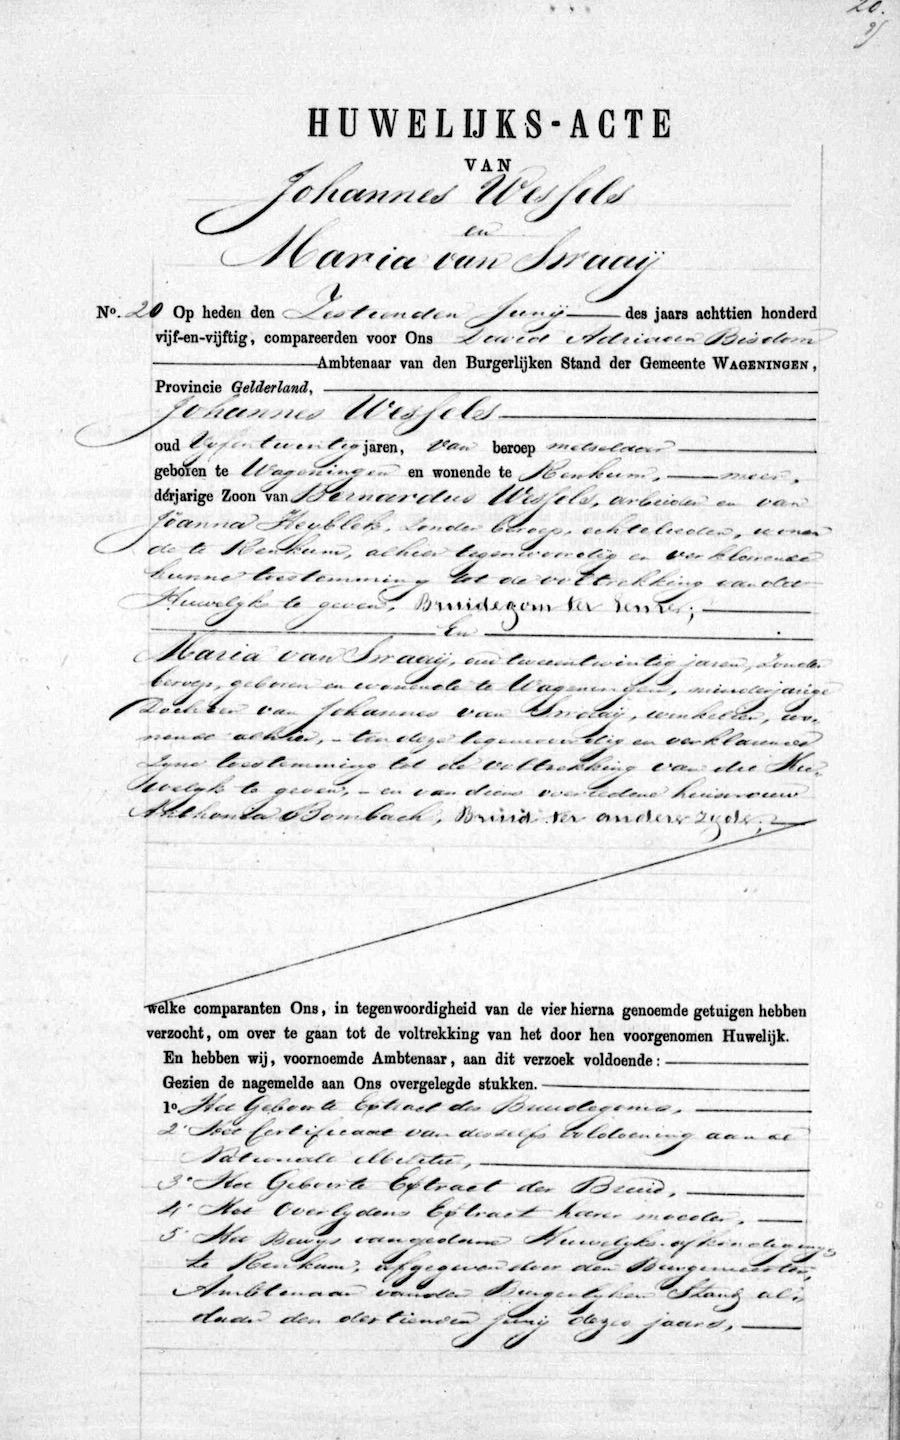 20.
HUWELIJKS-ACTE
VAN
Johannes Wessels
en
Maria van Swaaij
No. 20 Op heden den Zestienden Junij des jaars achttien honderd
vijf-en-vijftig, compareerden voor Ons David Adriaan Bisdom
Ambtenaar van den Burgerlijken Stand der Gemeente WAGENINGEN,
Provincie Gelderland,
Johannes Wessels
oud Vyfentwintig jaren, van beroep metselaar
geboren te Wageningen en wonende te Renkum, meer,
derjarige Zoon van Bernardus Wessels, arbeider en van
Joanna Heyblok, zonder beroep, echtelieden, wonen
de te Renkum, alhier tegenwoordig en verklarende
hunne toestemming tot de voltrekking van dit
Huwelyk te geven, Bruidegom ter eenre;
En
Maria van Swaaij, oud tweeentwintig jaren, zonder
beroep, geboren en wonende te Wageningen, minderjarige
Dochter van Johannes van Swaaij, winkelier, wo-
nende alhier, - ten deze tegenwoordig en verklarende
zyne toestemming tot de voltrekking van dit Hu-
welyk te geven, - en van diens overledene huisvrouw
Anthonia Bombach, Bruid ter andere zyde;
welke comparanten Ons, in tegenwoordigheid van de vier hierna genoemde getuigen hebben
verzocht, om over te gaan tot de voltrekking van het door hen voorgenomen Huwelijk.
En hebben wij, voornoemde Ambtenaar, aan dit verzoek voldoende:
Gezien de nagemelde aan Ons overgelegde stukken.
1o. Het Geboorte Extract des Bruidegoms,
2o Het Certificaat van deszelfs voldoening aan de
Nationale Militie,
3o Het Geboorte Extract der Bruid,
4o Het Overlydens Extract harer moeder,
5o Het Bewys van gedane Huwelyks-afkondiging
te Renkum, afgegeven door den Burgemeester,
Ambtenaar van den Burgerlyken Stand al-
daar den dertienden Junij dezes jaars,